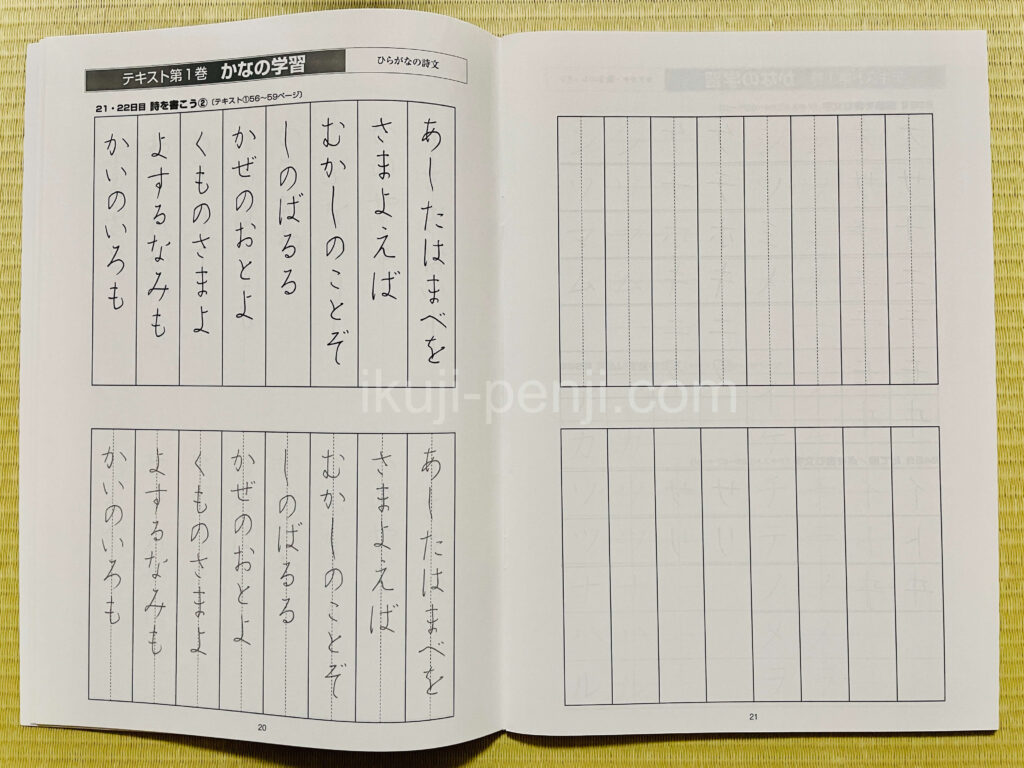 テキスト第1巻 かなの学習
ひらがなの詩文
21・22日目 詩を書こう② (テキスト①56〜59ページ)
あしたはまべを
さまよえば
むかしのことぞ
しのばるる
かぜのおとよ
くものさまよ
よするなみも
かいのいろも
あしたはまべを
さまよえば
むかしのことぞ
しのばるる
かぜのおとよ
くものさまよ
よするなみも
かいのいろも
20
21
ikuji-penji.com